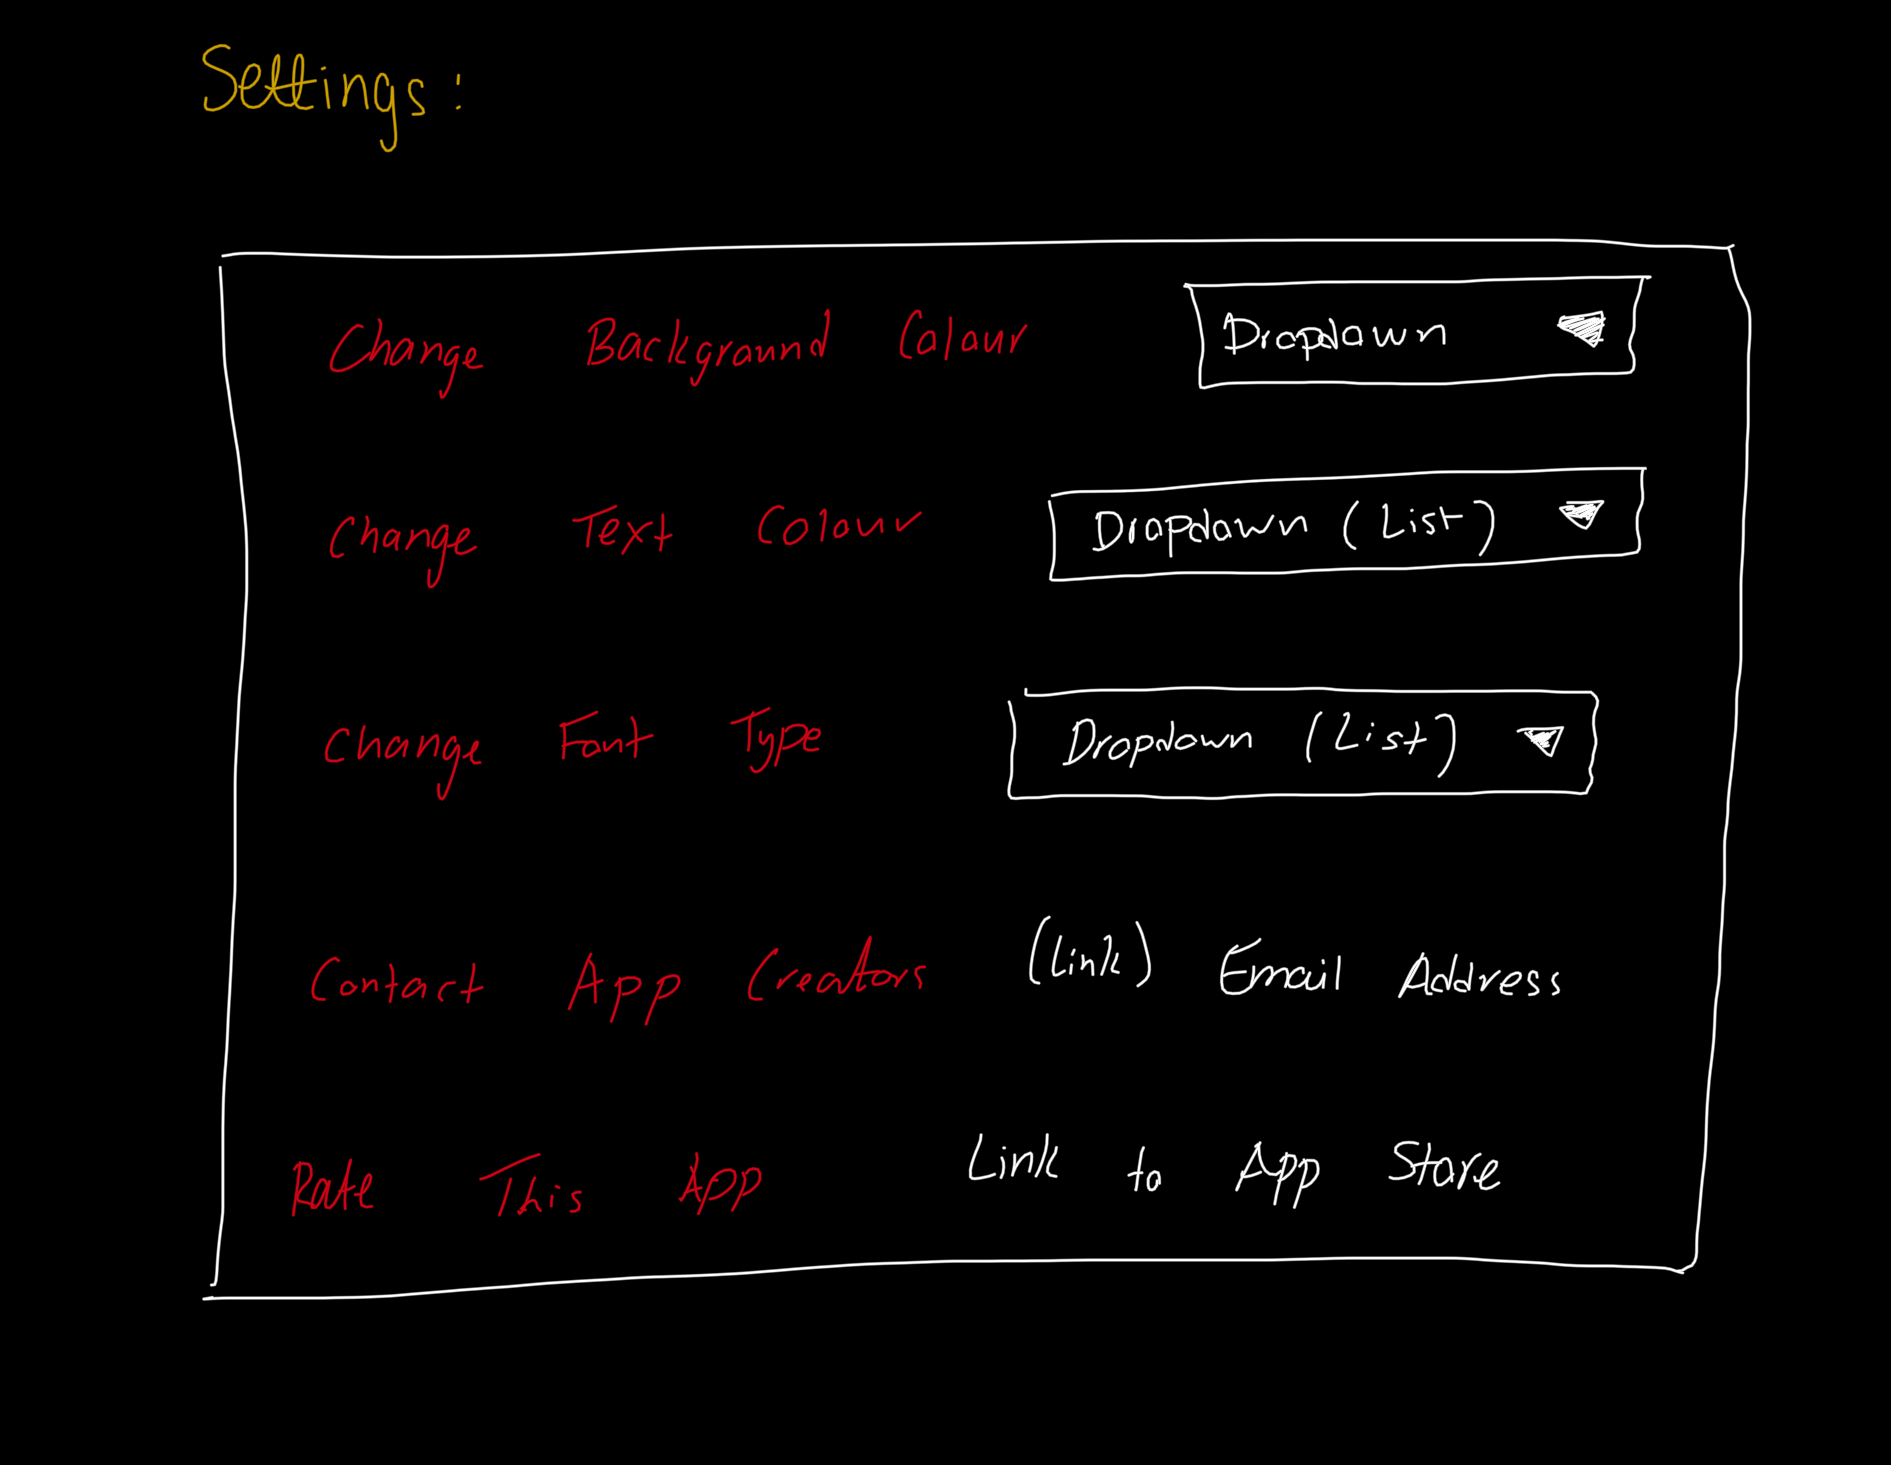 Settings:
Change Background Colour Dropdown
Change Text Colour Dropdown (List)
Change Font Type Dropdown (List)
Contact App Creators (Link) Email Address
Rate This App Link to App Store